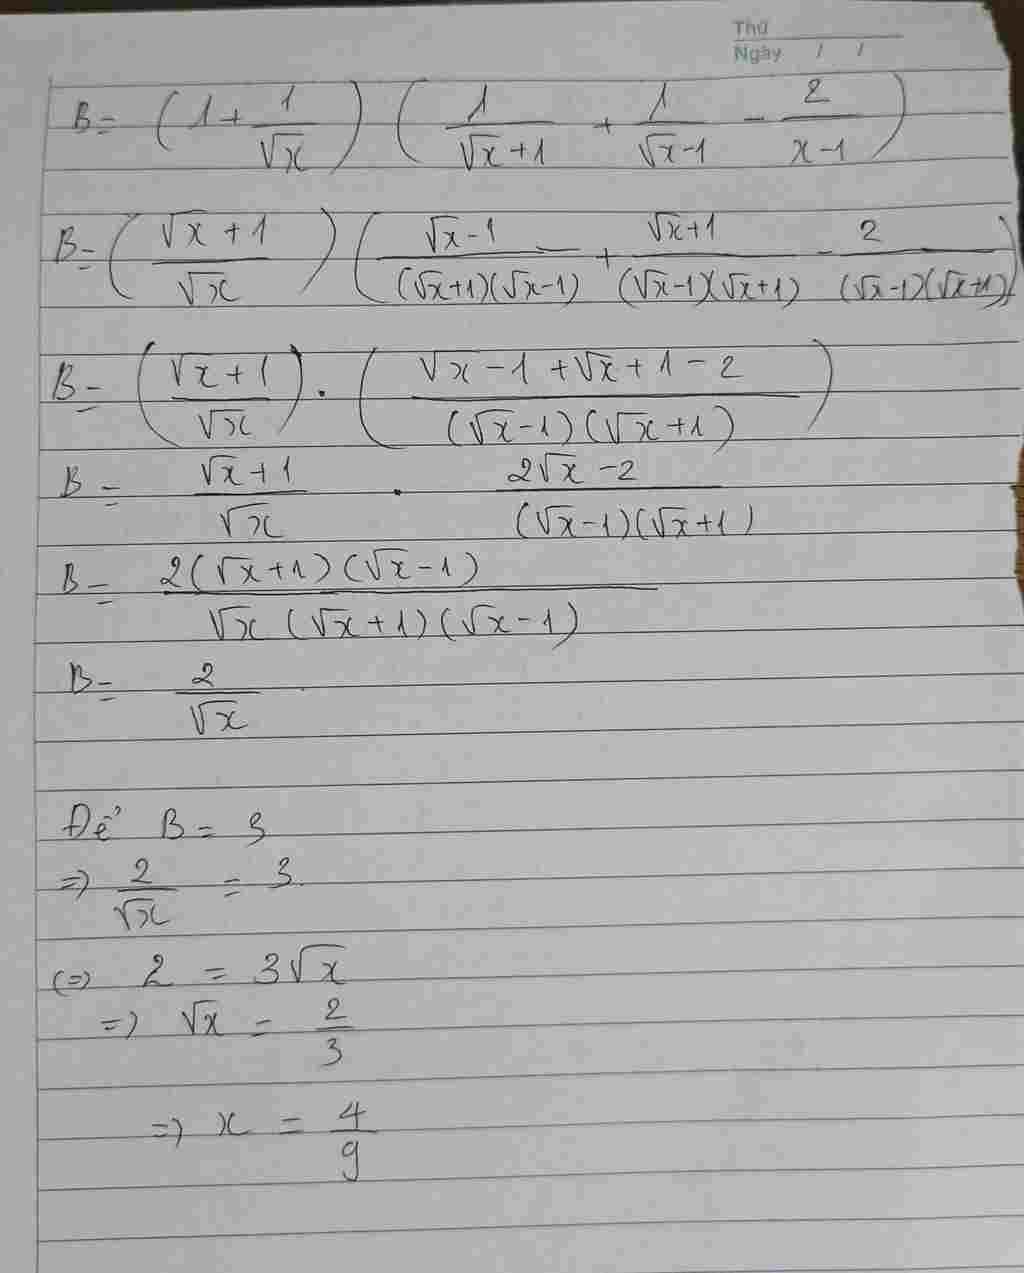 Thứ
Ngày / /
B = (1 + 1/√x) (1/(√x+1) + 1/(√x-1) - 2/(x-1))
B = ((√x+1)/√x) ((√x-1)/((√x+1)(√x-1)) + (√x+1)/((√x-1)(√x+1)) - 2/((√x-1)(√x+1)))
B = ((√x+1)/√x) . ((√x-1+√x+1-2)/((√x-1)(√x+1)))
B = (√x+1)/√x . (2√x-2)/((√x-1)(√x+1))
B = 2(√x+1)(√x-1)/(√x(√x+1)(√x-1))
B = 2/√x
Để B = 3
=> 2/√x = 3
(=) 2 = 3√x
=> √x = 2/3
=> x = 4/9